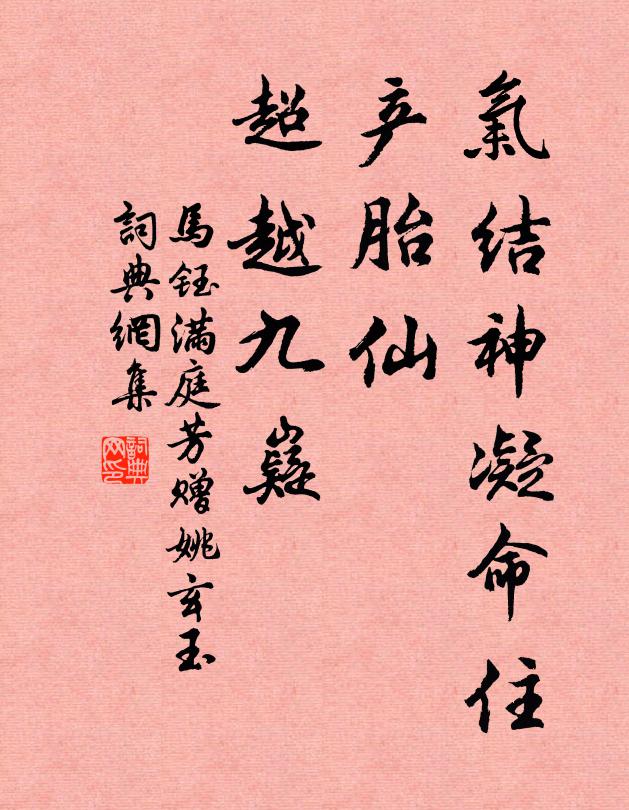 氣结神凝命住
产胎仙
超越九嶷
馬鈺滿庭芳赠姚玄玉
詞典網集
詞典網印